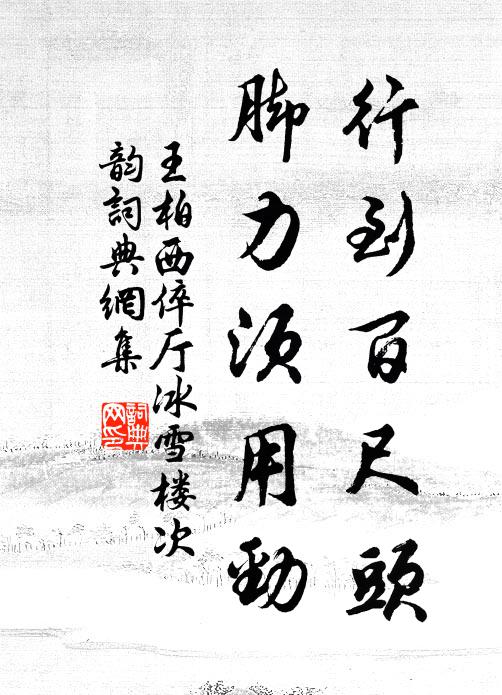 行到百尺頭
脚力須用勁
王柏西倅厅冰雪楼次
韵詞典網集
詞典网印